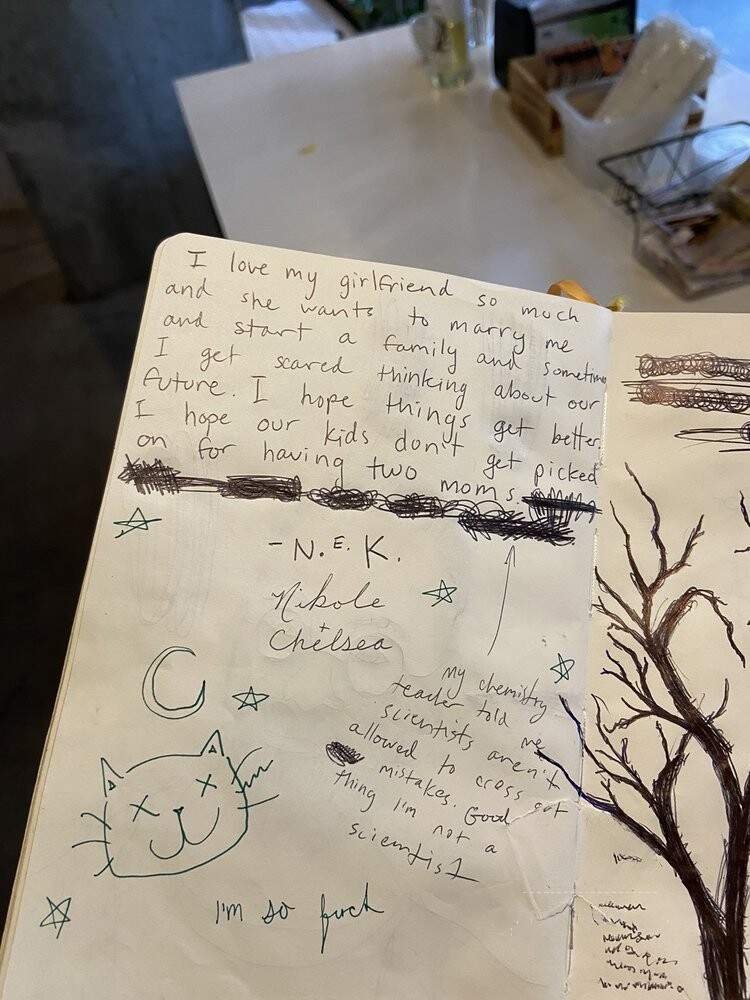 I love my girlfriend so much
and she wants to marry me
and start a family and sometimes
I get scared thinking about our
future. I hope things get better.
I hope our kids don't get picked
on for having two moms.
-N.E.K.
Nikole
+
Chelsea
my chemistry
teacher told me
scientists aren't
allowed to cross out
mistakes. Good
thing I'm not a
scientist
I'm so fuck